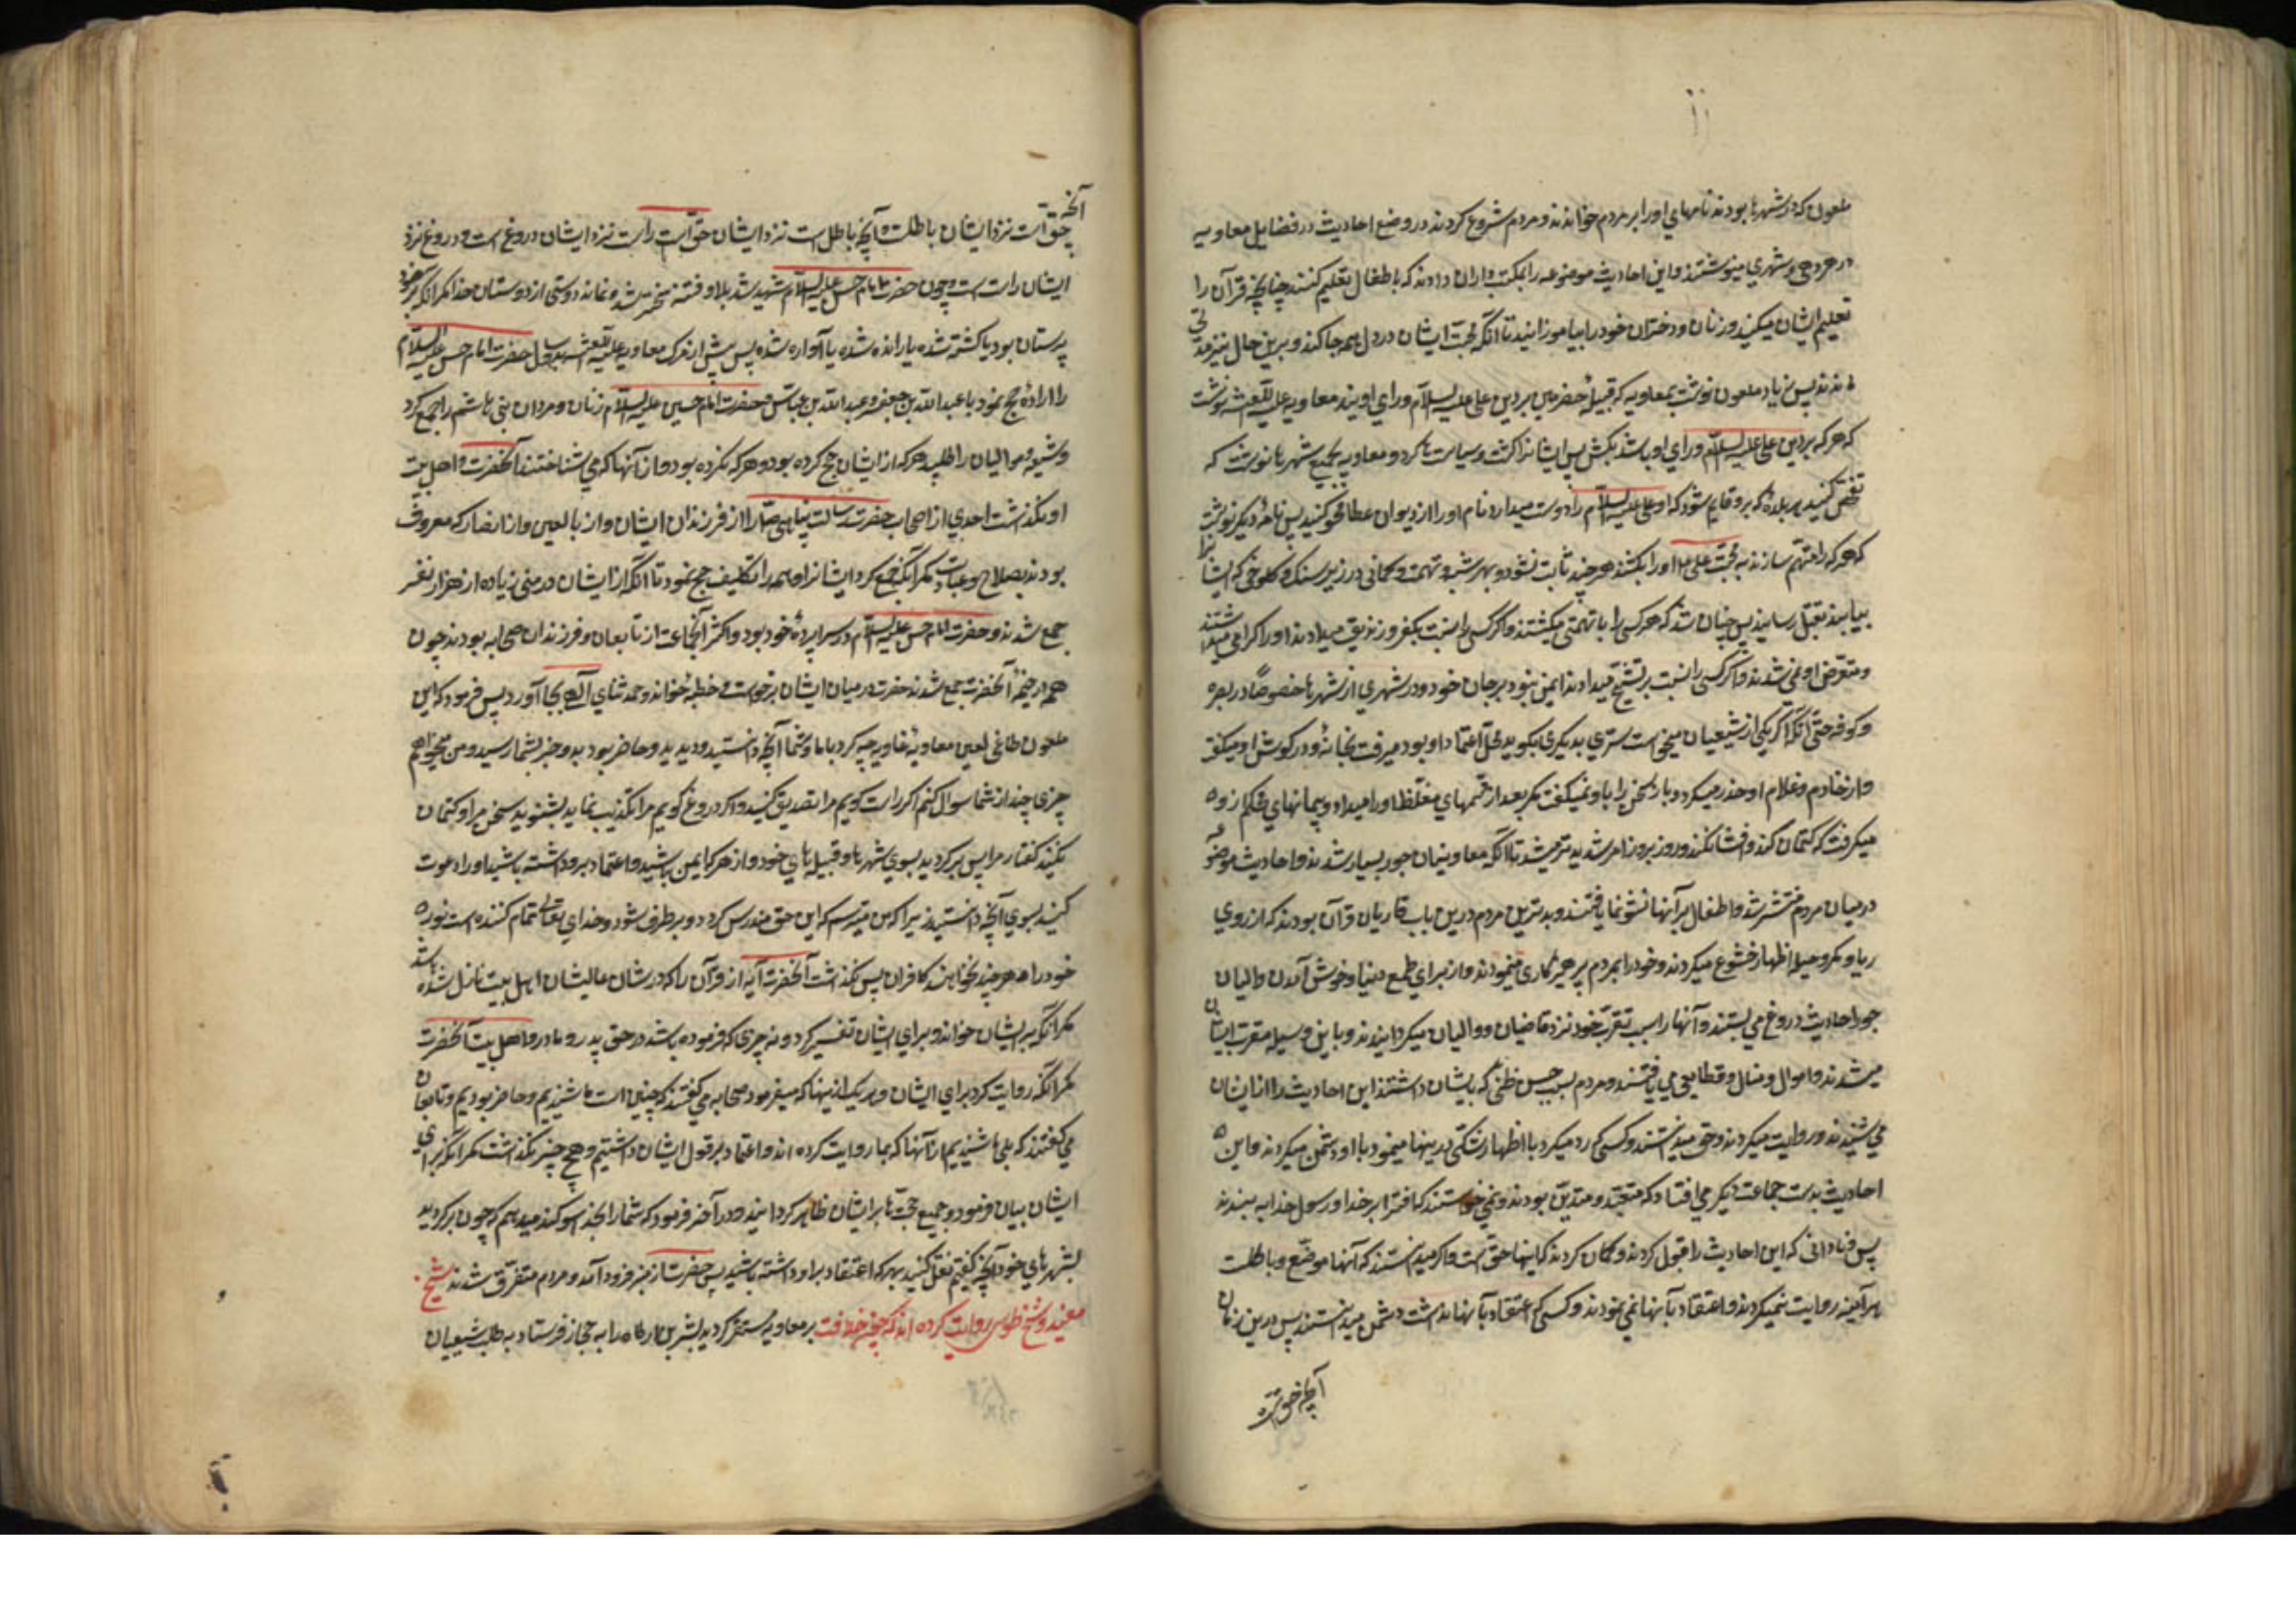 ملعون که در شهرها بودند نامهای او را بر مردم خواندند و مردم شروع کردند در وضع احادیث در فضایل معاویه
در هر دهی و شهری مینوشتند و این احادیث موضوعه را بمکتب داران دادند که باطفال تعلیم کنند چنانچه قرآن را
تعلیم ایشان میکنید و زنان و دختران خود را بیاموزانید تا آنکه محبت ایشان در دل همه جا کند و برین حال نیز مدتی
ماندند پس زیاد ملعون نوشت بمعاویه که قبیله حضرمیین بر دین علی علیه السلام و رای اویند معاویه علیه اللعنه نوشت
که هر که بر دین علی علیه السلام و رای او باشد بکش پس ایشانرا کشت و سیاست ها کرد و معاویه بجمیع شهرها نوشت که
تفحص کنید هر بلده که برو قایم شود که او علی علیه السلام را دوست میدارد نام او را از دیوان عطا محو کنید پس نامه دیگر نوشت
که هر که را متهم سازند به محبت علی او را بکشند هر چند ثابت نشود و بهر شبهه و تهمت و گمانی در زیر سنک و کلوخی که ایشانرا
بیابند بقتل رسانید پس چنان شد که هر کسی را بتهمتی میکشتند و اگر کسی را نسبت بکفر و زندیق میدادند او را کرامی میداشتند
و متعرض او نمی شدند و اگر کسی را نسبت بر تشیع میدادند ایمن نبود بر جان خود و در شهری از شهرها خصوصاً در بصره
و کوفه حتی آنکه اگر یکی از شیعیان میخواست سرّی بدیگری بگوید که محل اعتماد او بود میرفت بخانه او و در گوش او میگفت
و از خادم و غلام او حذر میکرد و باز سخن را باو نمیگفت مگر بعد از قسمهای مغلظه او را میداد و پیمانهای محکم از وه
میگرفت که کتمان کند و افشا نکند و روز بروز امر شدید تر میشد تا آنکه معاونان جور بسیار شدند و احادیث موضوعه
در میان مردم منتشر شد و اطفال بر آنها نشو نما یافتند و بدترین مردم درین باب قاریان قرآن بودند که از روی
ریا و مکر و حیله اظهار خشوع میکردند و خود را بمردم پرهیزکاری مینمودند و از برای طمع دنیا و خوش آمدن والیان
جور احادیث دروغ می بستند و آنها را سبب تقرب خود نزد قاضیان و والیان میکردانیدند و باین وسیله مقرب ایشان
میشدند و اموال و منال و قطایعی می یافتند و مردم بسبب حسن ظنی که بایشان داشتند این احادیث را از ایشان
می شنیدند و روایت میکردند و حق میدانستند و کسی که رد میکرد یا اظهار شکی درینها مینمود با او دشمنی میکردند و این
احادیث بدست جماعت دیگر می افتاد که متعبد و متدین بودند و نمی خواستند که افترا بر خدا و رسول خدا به بندند
پس بنادانی که این احادیث را قبول کردند و گمان کردند که اینها حق است و اگر میدانستند که آنها موضع و باطلست
هر آینه روایت نمیکردند و اعتقاد بآنها نمی نمودند و کسی که اعتقاد بآنها نداشت دشمن میدانستند پس درین زمان
آنچه حق است
آنچه
حق است نزد ایشان باطلست و آنچه باطل است نزد ایشان حق است و راست نزد ایشان دروغ است و دروغ نزد
ایشان راست است و چون حضرت امام حسن علیه السلام شهید شد بلا و فتنه سخت تر شد و نماند دوستی از دوستان خدا مگر آنکه بر خود
ترسان بود یا کشته شده یا رانده شده یا آواره شده پس پیش از مرگ معاویه علیه اللعنه بدو سال حضرت امام حسین علیه السلام
را اراده حج نمود با عبدالله بن جعفر و عبدالله بن عباس و حضرت امام حسین علیه السلام زنان و مردان بنی هاشم را جمع کرد
و شیعه و موالیان را طلبید هر که از ایشان حج کرده بود و هر که نکرده بود و از آنها که می شناختند آنحضرت و اهل بیت
او نگذاشت احدی از اصحاب حضرت رسالت پناهی را از فرزندان ایشان و از تابعین و از انصار که معروف
بودند بصلاح و عبادت مگر آنکه جمع کرد ایشانرا و همه را تکلیف حج نمود تا آنکه از ایشان در منی زیاده از هزار نفر
جمع شدند و حضرت امام حسن علیه السلام در سراپرده خود بود و اکثر آنجماعت از تابعان و فرزندان صحابه بودند چون
همه در خیمه آنحضرت جمع شدند حضرت در میان ایشان برخواست و خطبه خواند و حمد ثنای الهی بجا آورد پس فرمود که این
ملعون طاغی لعین معاویه غاویه چه کرد با ما و شما آنچه دانستید و دیدید و حاضر بودید و خبر بشما رسید و من میخواهم
چیزی چند از شما سوال کنم اگر راست گویم مرا تصدیق کنید و اگر دروغ گویم مرا تکذیب نمایید بشنوید سخن مرا و کتمان
بکنید گفتار مرا پس برگردید بسوی شهرها و قبیله های خود و از هر که ایمن باشید و اعتماد برو داشته باشید او را دعوت
کنید بسوی آنچه دانستید زیرا که من میترسم که این حق مندرس گردد و برطرف شود و خدای تعالی تمام کننده است نور
خود را هر چند نخواهند کافران پس نگذاشت آنحضرت آیه از قرآن را که در شان عالیشان اهل بیت نازل شده باشد
مگر آنکه بر ایشان خواند و برای ایشان تفسیر کرد و نه چیزی که فرموده باشد در حق پدر و مادر و اهل بیت آنحضرت
مگر آنکه روایت کرد برای ایشان و هر یک ازینها که میفرمود صحابه می گفتند که چنین است ما شنیدیم و حاضر بودیم و تابعان
می گفتند که بلی ما شنیدیم از آنها که بما روایت کرده اند و اعتماد بر قول ایشان داشتیم و هیچ چیز نگذاشت مگر آنکه برای
ایشان بیان فرمود و جمیع حجت ها بر ایشان ظاهر گردانید و در آخر فرمود که شما را بخدا سوگند میدهم که چون برگردید
بشهرهای خود آنچه گفتم نقل کنید بهر که اعتقاد بر او داشته باشید پس حضرت از منبر فرود آمد و مردم متفرق شدند شیخ
مفید و شیخ طوسی روایت کرده اند که چون خلافت بر معاویه مستقر گردید بشر بن ارطاه را به حجاز فرستاد به طلب شیعیان